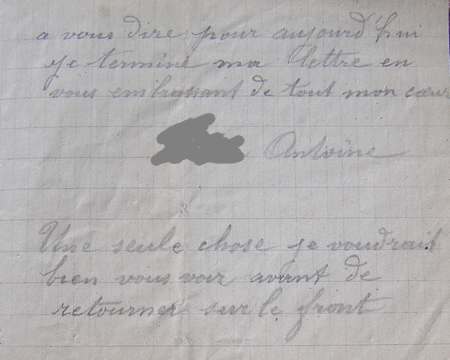 a vous dire pour aujourd'hui
je termine ma lettre en
vous embrassant de tout mon cœur
Antoine
Une seule chose je voudrais
bien vous voir avant de
retourner sur le front